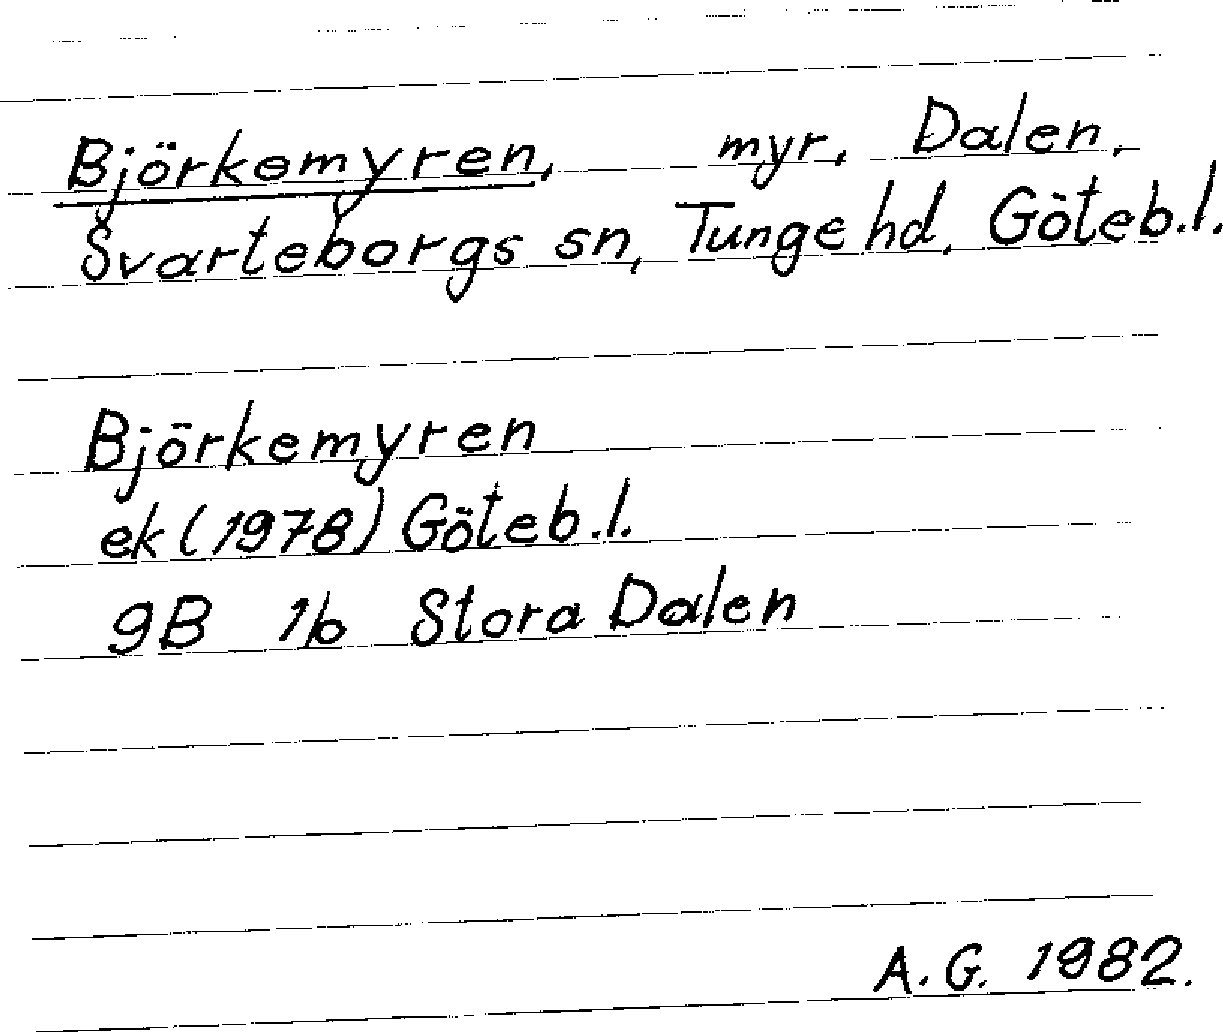 Björkemyren, myr, Dalen,
Svarteborgs sn, Tunge hd, Göteb.l.
Björkemyren
ek (1978) Göteb.l.
9B 1b Stora Dalen
A.G. 1982.